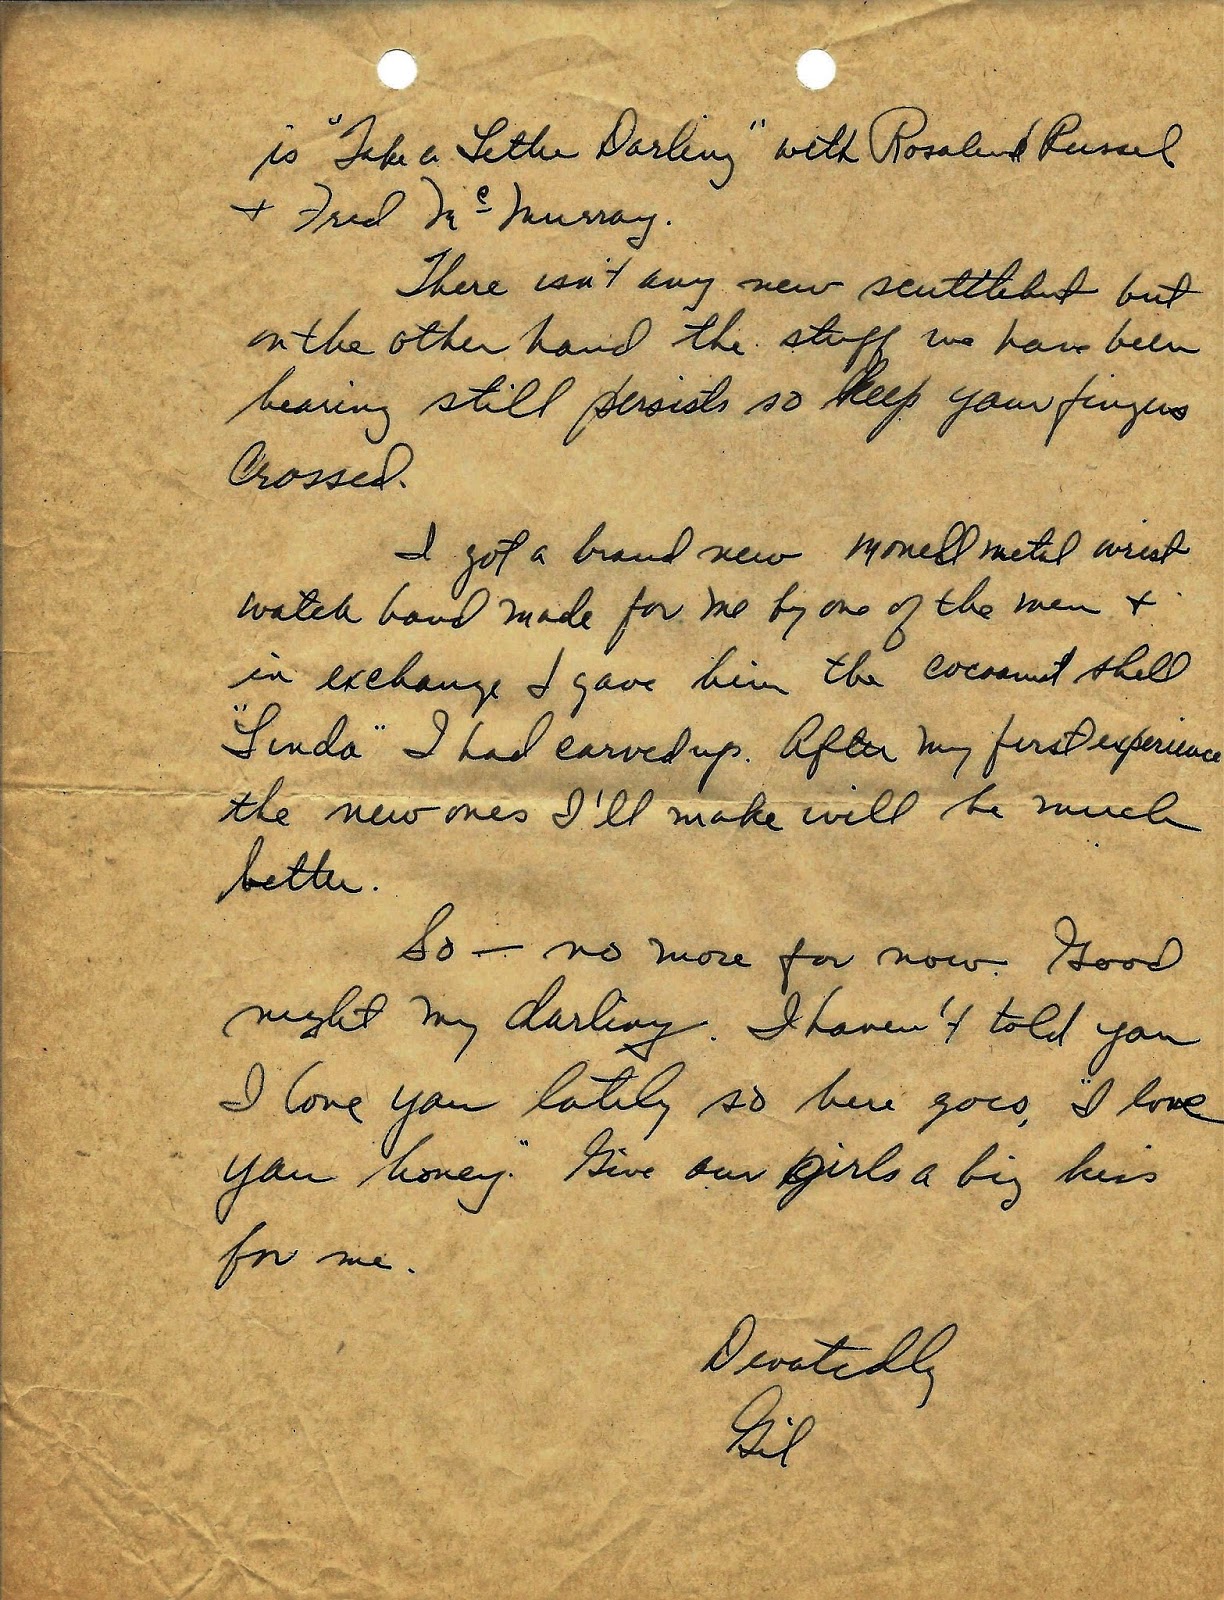 is "Take a Letter Darling" with Rosalind Russel
+ Fred Mc Murray.
There isn't any new scuttlebut but
on the other hand the stuff we have been
hearing still persists so keep your fingers
crossed.
I got a brand new monell metal wrist
watch band made for me by one of the men +
in exchange I gave him the cocoanut shell
"Linda" I had carved up. After my first experience
the new ones I'll make will be much
better.
So — no more for now. Good
night my darling. I haven't told you
I love you lately so here goes, "I love
you honey." Give our girls a big kiss
for me.
Devotedly
Gil